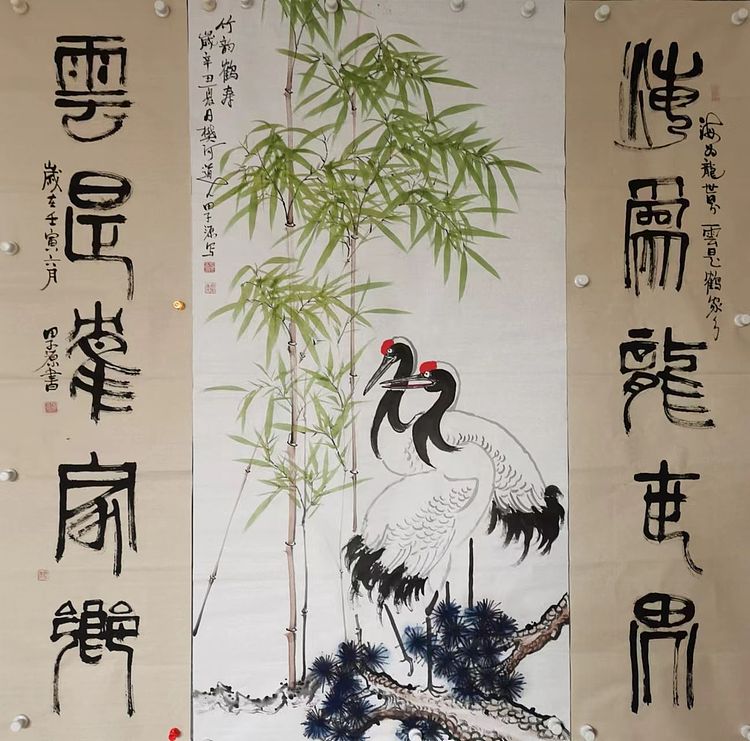 海為龍世界
海为龍世界 雲是鶴家乡
竹韵鶴寿
歲辛丑夏月樾河道人田子源写
雲是鶴家鄉
歲在壬寅六月 田子源書